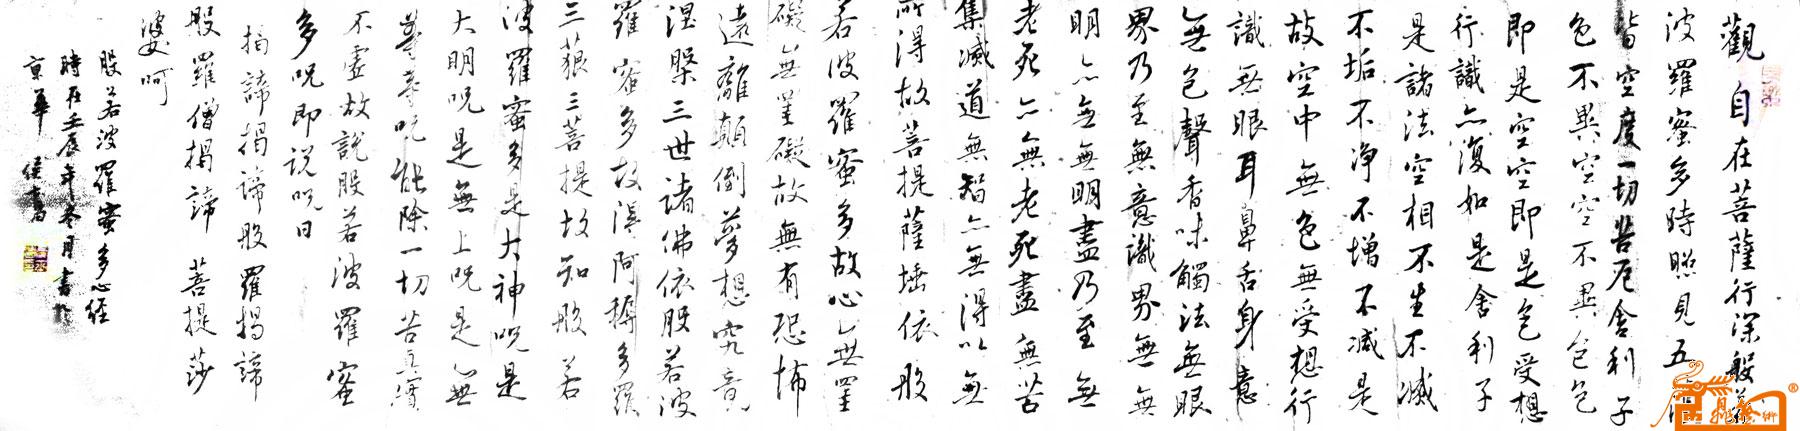 觀自在菩薩行深般若
波羅蜜多時照見五蘊
皆空度一切苦厄舍利子
色不異空空不異色色
即是空空即是色受想
行識亦復如是舍利子
是諸法空相不生不滅
不垢不净不增不減是
故空中無色無受想行
識無眼耳鼻舌身意
無色聲香味觸法無眼
界乃至無意識界無無
明亦無無明盡乃至無
老死亦無老死盡無苦
集滅道無智亦無得以無
所得故菩提薩埵依般
若波羅蜜多故心無罣
礙無罣礙故無有恐怖
遠離顛倒夢想究竟
涅槃三世諸佛依般若波
羅蜜多故得阿耨多羅
三藐三菩提故知般若
波羅蜜多是大神呪是
大明呪是無上呪是無
等等呪能除一切苦真實
不虛故說般若波羅蜜
多呪即説呪曰
揭諦揭諦般羅揭諦
般羅僧揭諦菩提莎
婆呵
般若波羅蜜多心經
時在壬辰年冬月書於
京華